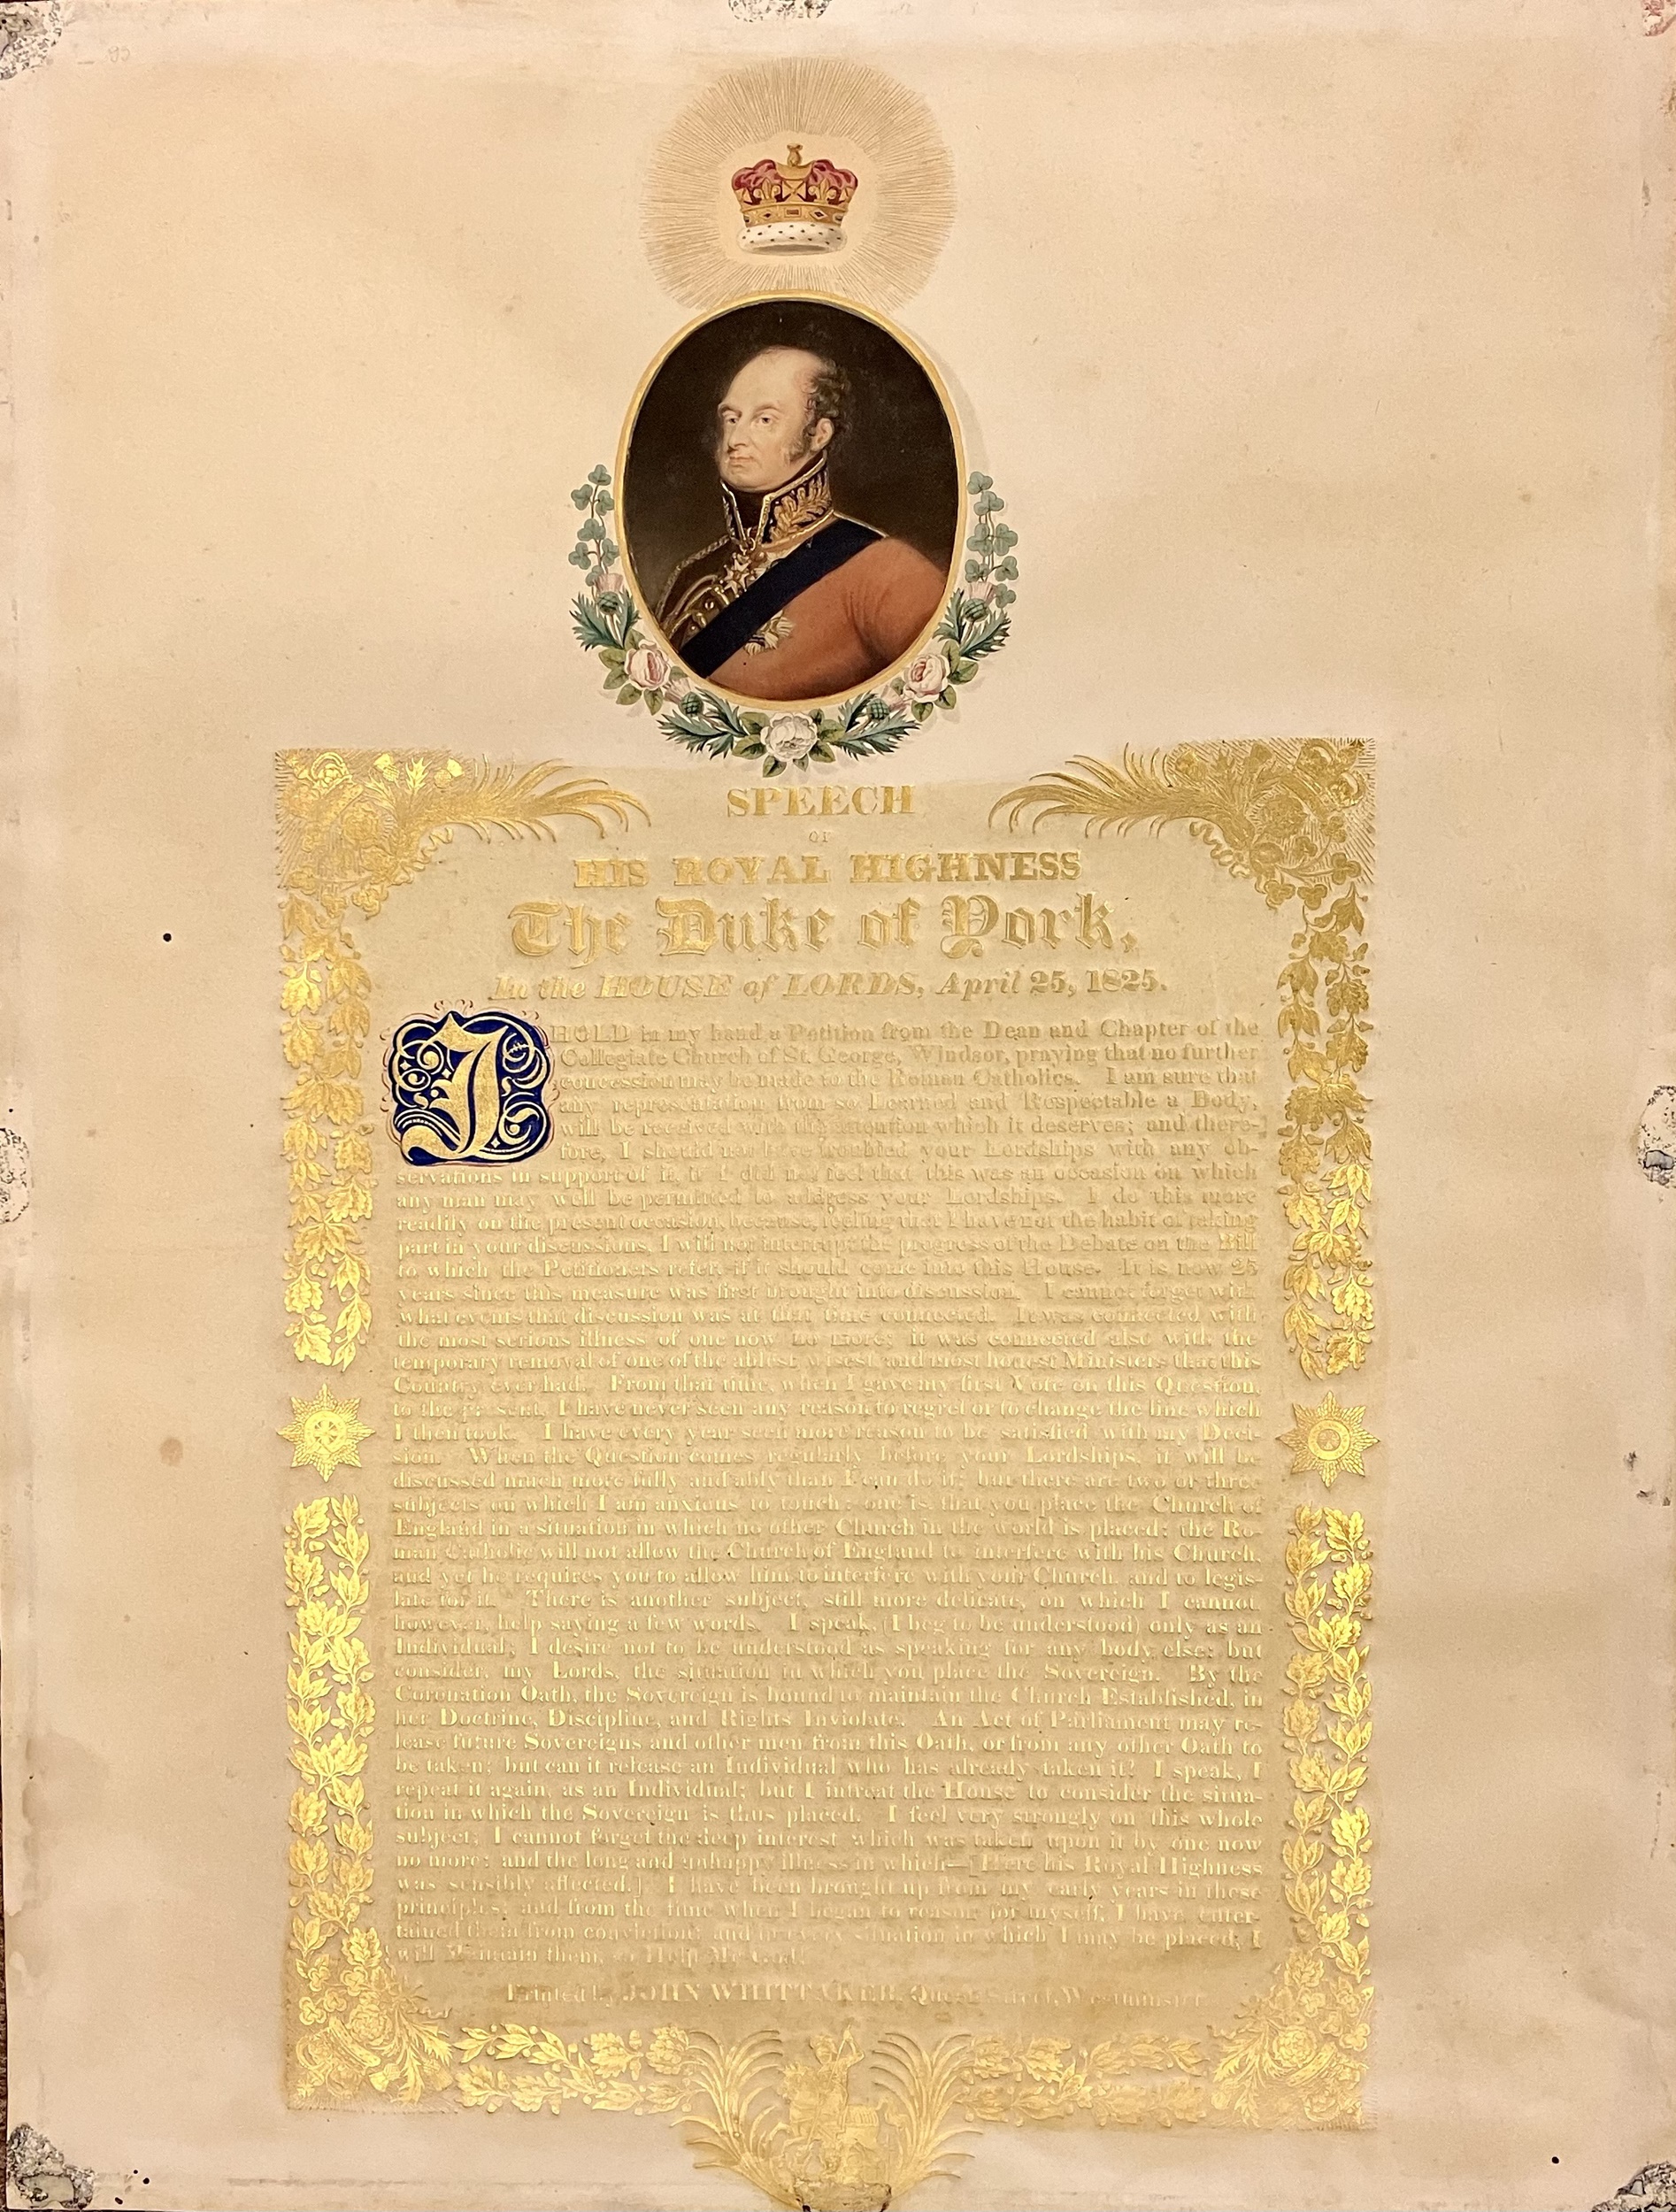 SPEECH
OF
HIS ROYAL HIGHNESS
The Duke of York,
In the HOUSE of LORDS, April 25, 1825.
I HOLD in my hand a Petition from the Dean and Chapter of the
Collegiate Church of St. George, Windsor, praying that no further
concession may be made to the Roman Catholics. I am sure that
any representation from so Learned and Respectable a Body,
will be received with the attention which it deserves; and there-
fore, I should not have troubled your Lordships with any ob-
servations in support of it, if I did not feel that this was an occasion on which
any man may well be permitted to address your Lordships. I do this more
readily on the present occasion, because, feeling that I have not the habit of taking
part in your discussions, I will not interrupt the progress of the Debate on the Bill
to which the Petitioners refer, if it should come into this House. It is now 25
years since this measure was first brought into discussion. I cannot forget with
what events that discussion was at that time connected. It was connected with
the most serious illness of one now no more; it was connected also with the
temporary removal of one of the ablest, wisest, and most honest Ministers that this
Country ever had. From that time, when I gave my first Vote on this Question,
to the present, I have never seen any reason to regret or to change the line which
I then took. I have every year seen more reason to be satisfied with my Deci-
sion. When the Question comes regularly before your Lordships, it will be
discussed much more fully and ably than I can do it; but there are two or three
subjects on which I am anxious to touch: one is, that you place the Church of
England in a situation in which no other Church in the world is placed: the Ro-
man Catholic will not allow the Church of England to interfere with his Church,
and yet he requires you to allow him to interfere with your Church, and to legis-
late for it. There is another subject, still more delicate, on which I cannot,
however, help saying a few words. I speak, (I beg to be understood) only as an
Individual; I desire not to be understood as speaking for any body else; but
consider, my Lords, the situation in which you place the Sovereign. By the
Coronation Oath, the Sovereign is bound to maintain the Church Established, in
her Doctrine, Discipline, and Rights Inviolate. An Act of Parliament may re-
lease future Sovereigns and other men from this Oath, or from any other Oath to
be taken; but can it release an Individual who has already taken it? I speak, I
repeat it again, as an Individual; but I intreat the House to consider the situa-
tion in which the Sovereign is thus placed. I feel very strongly on this whole
subject; I cannot forget the deep interest which was taken upon it by one now
no more; and the long and unhappy illness in which—[Here his Royal Highness
was sensibly affected.] I have been brought up from my early years in these
principles; and from the time when I began to reason for myself, I have enter-
tained them from conviction; and in every situation in which I may be placed, I
will Maintain them, so Help Me God.
Printed by JOHN WHITTAKER, Queen Street, Westminster.